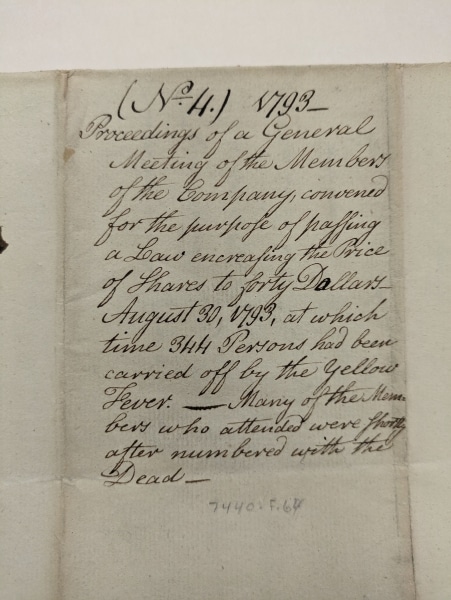 (No. 4.) 1793—
Proceedings of a General
Meeting of the Members
of the Company, convened
for the purpose of passing
a Law encreasing the Price
of Shares to forty Dollars—
August 30, 1793, at which
time 344 Persons had been
carried off by the Yellow
Fever. — Many of the Mem-
bers who attended were shortly
after numbered with the
Dead—